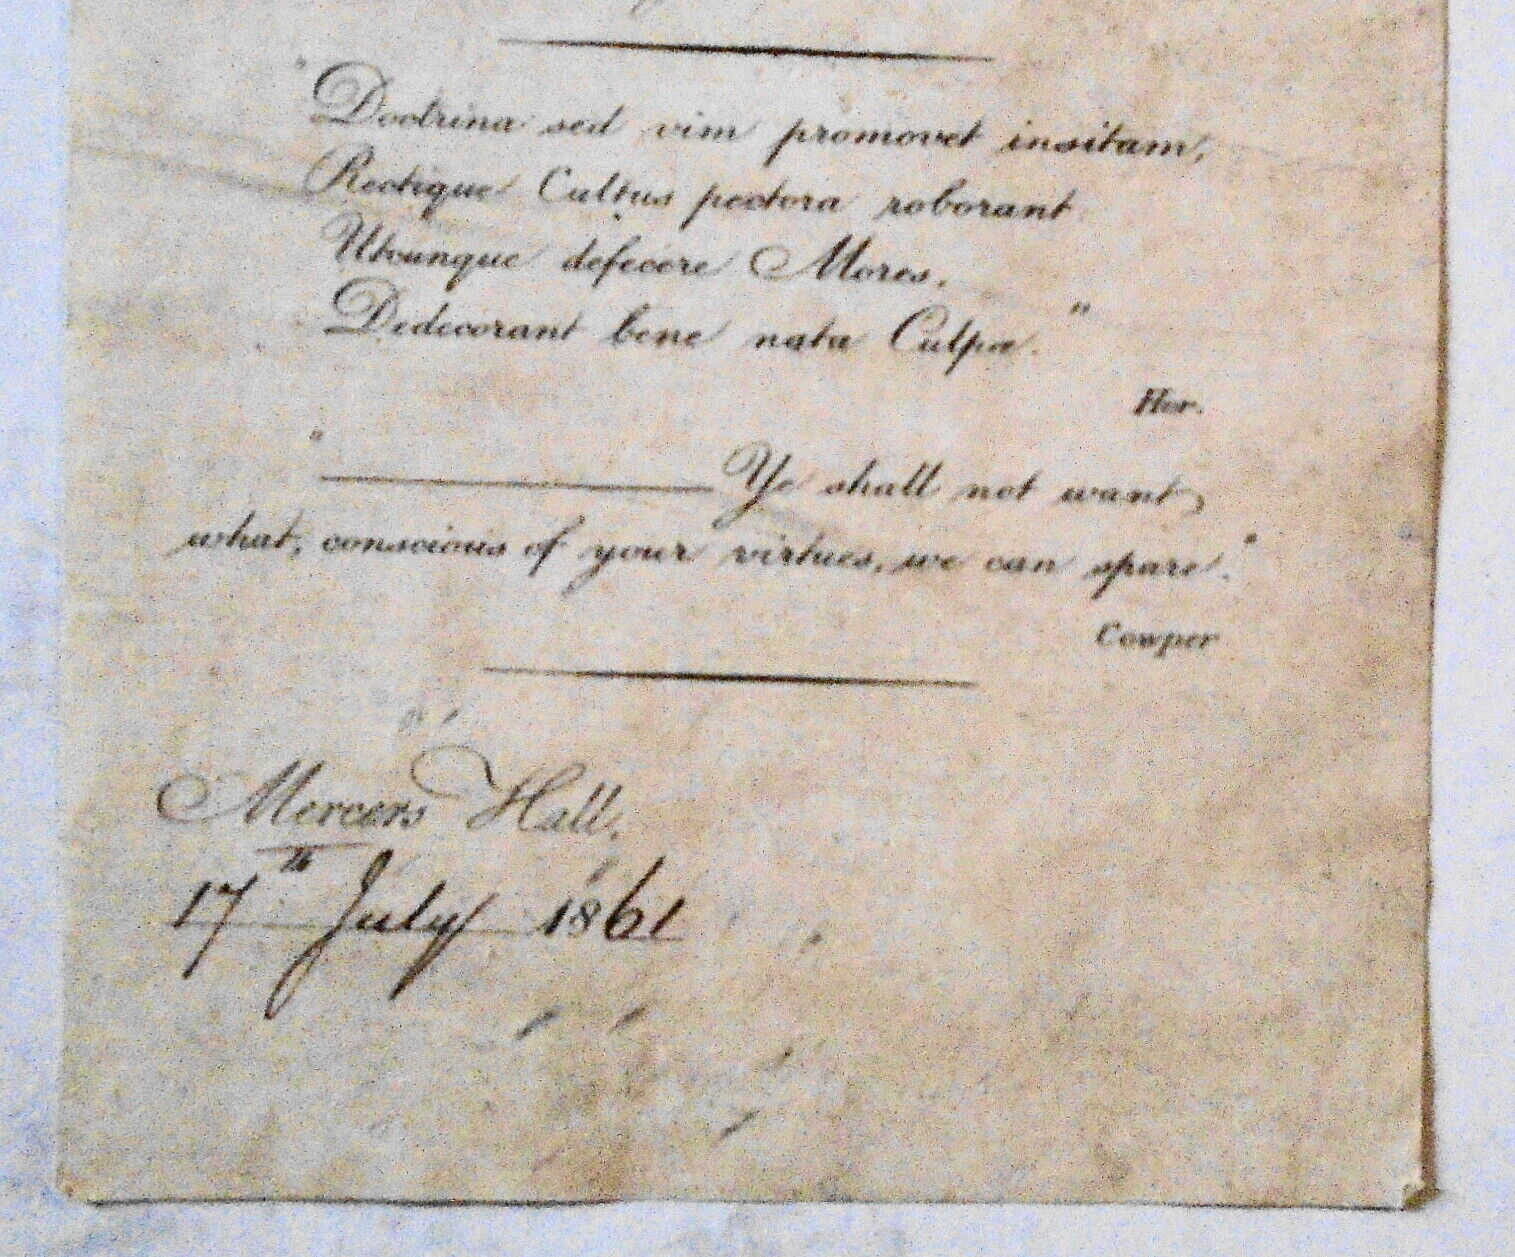 "Doctrina sed vim promovet insitam,
Rectique Cultus pectora roborant
Utcunque defecere Mores,
Dedecorant bene nata Culpæ."
Hor.
"———— Ye shall not want
what, conscious of your virtues, we can spare."
Cowper
Mercers Hall,
17th July 1861